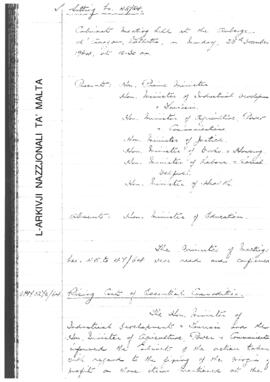 Sitting No. 48/64.
Cabinet Meeting held at the Auberge
d'Aragon, Valletta, on Monday, 28th December
1964, at 10.30 am
Present: Hon. Prime Minister
Hon. Minister of Industrial Development
& Tourism
Hon. Minister of Agriculture, Power
& Communications
Hon. Minister of Justice
Hon. Minister of Works & Housing
Hon. Minister of Labour & Social
Welfare
Hon. Minister of Health
Absent: Hon. Minister of Education.
The Minutes of Meetings
Nos. 45 to 47/64 were read and confirmed
Rising Cost of Essential Commodities.
The Hon. Minister of
Industrial Development & Tourism and the
Hon. Minister of Agriculture, Power & Communications
informed the Cabinet of the action taken
with regard to the fixing of the margin of
profit on those items mentioned at the
L-ARKIVJI NAZZJONALI TA' MALTA